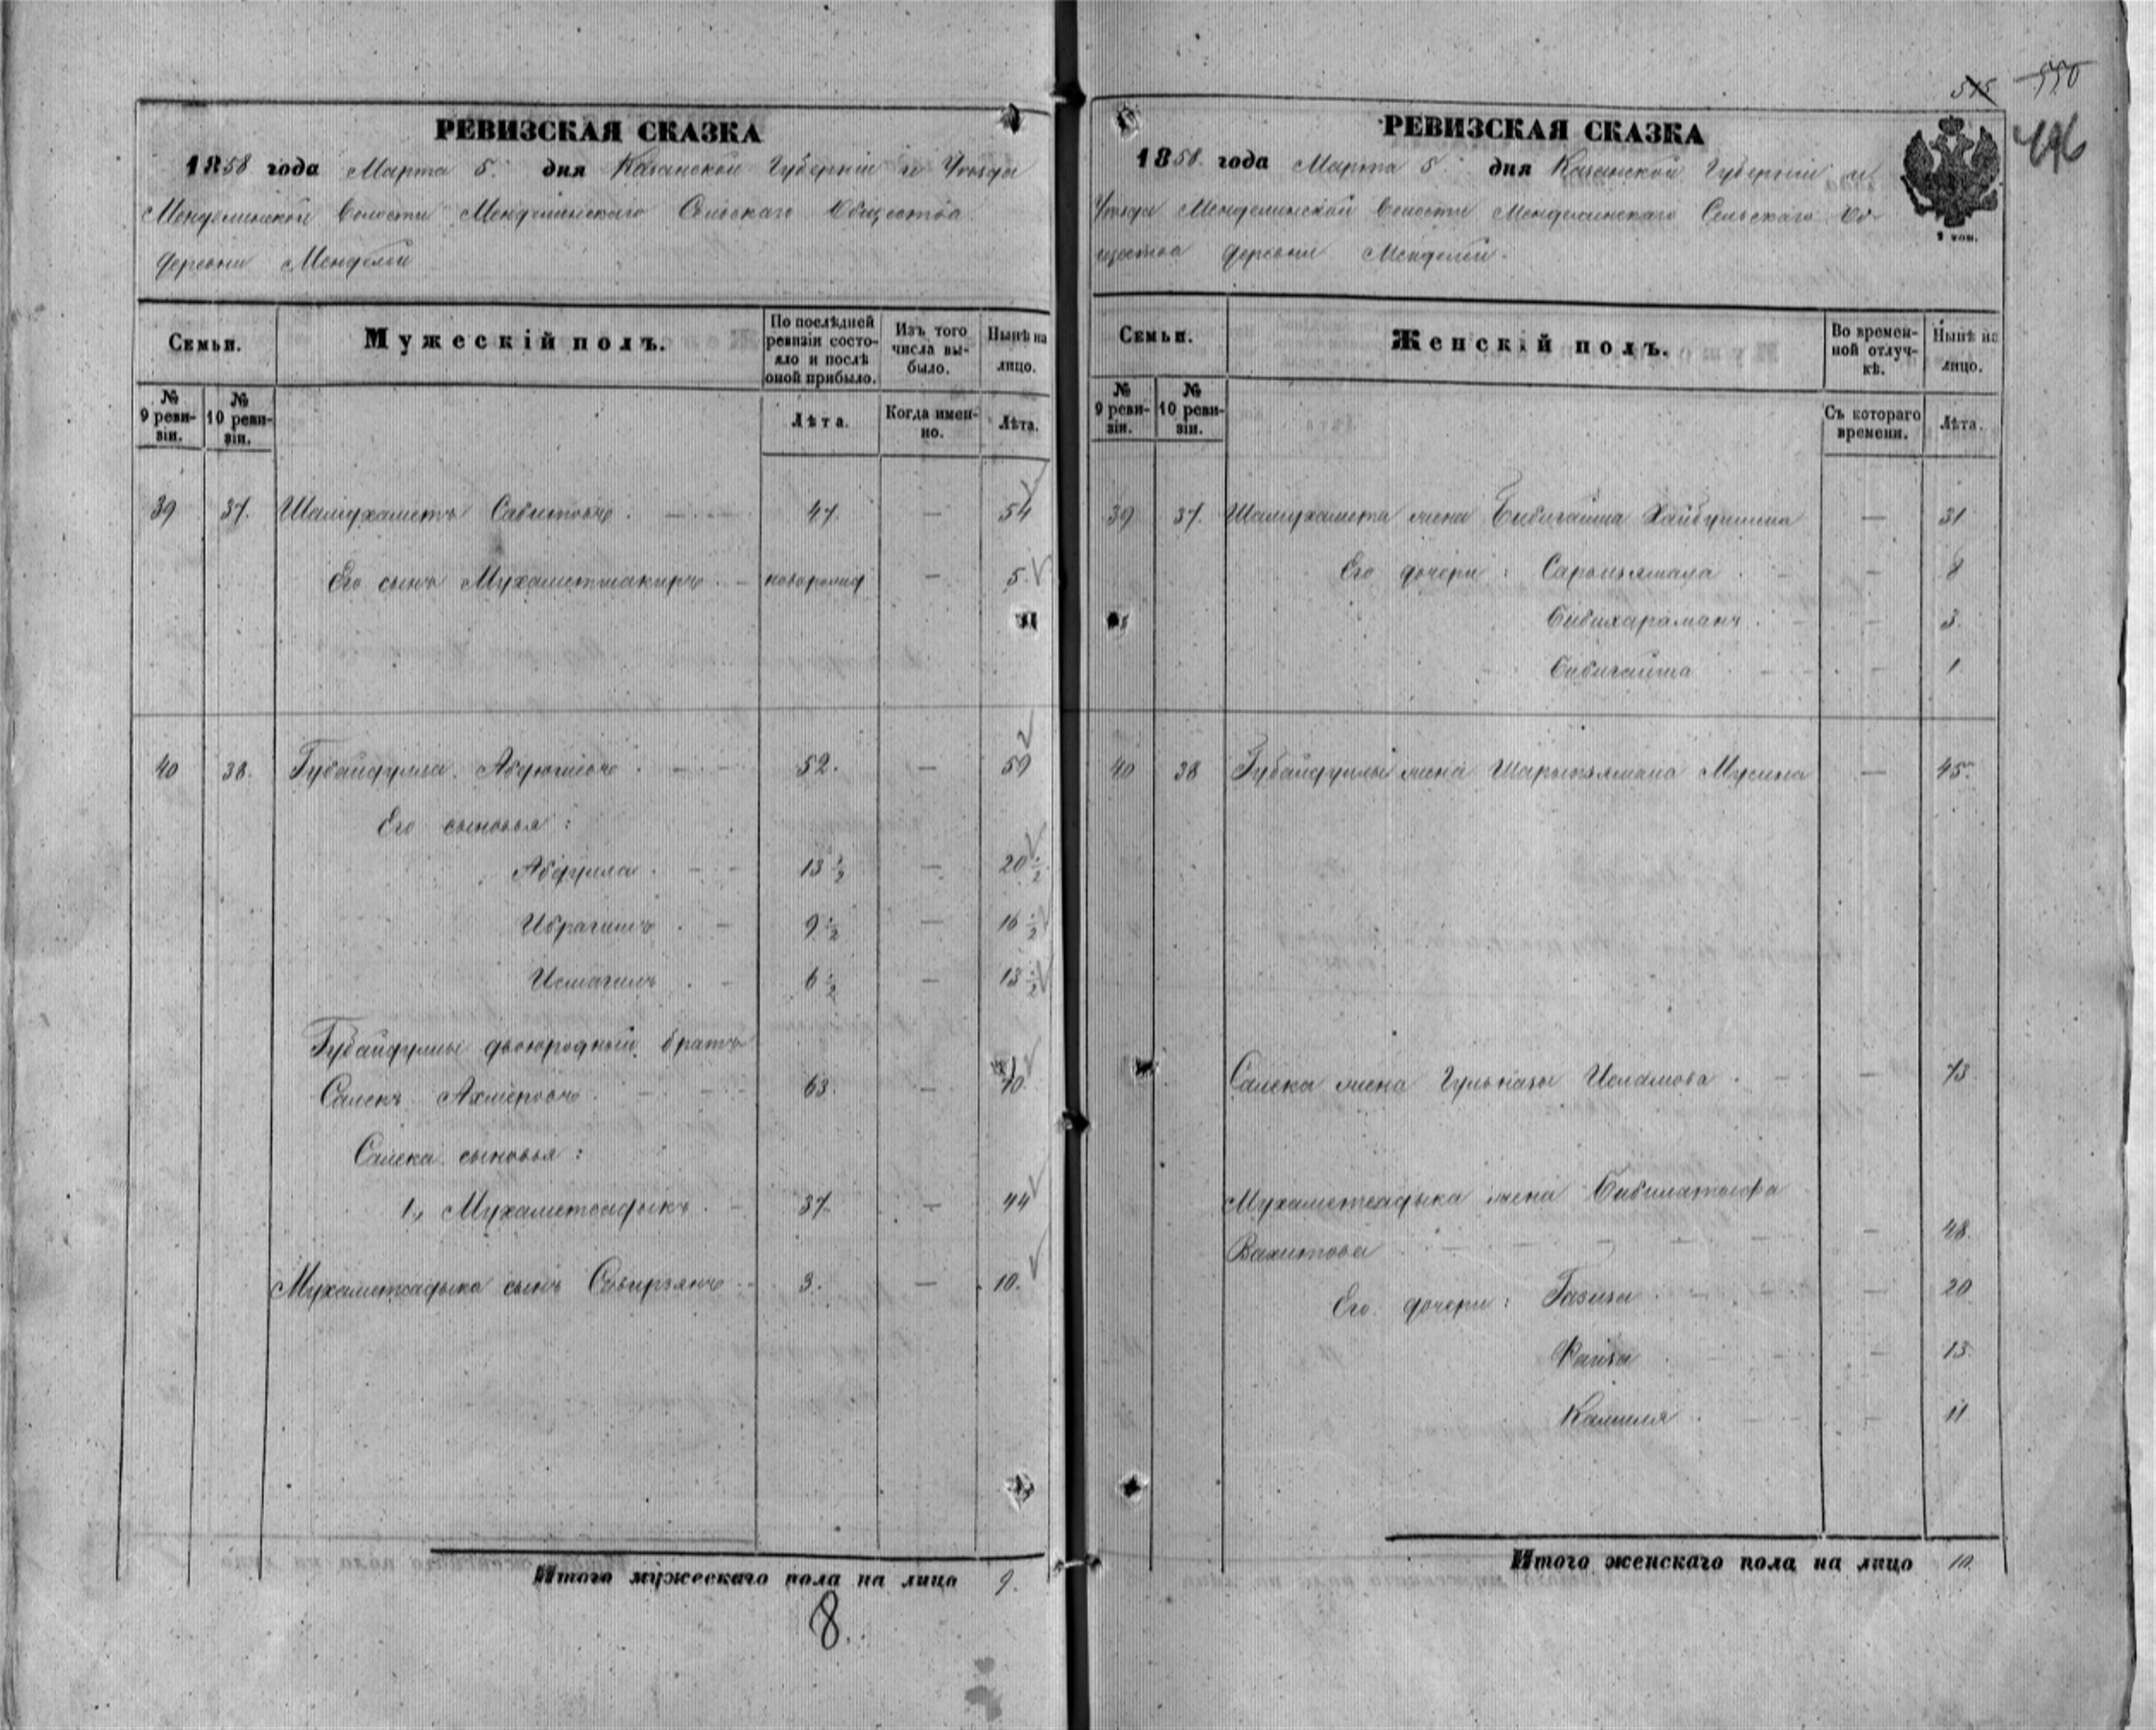 515 550
496
РЕВИЗСКАЯ СКАЗКА
1858 года Марта 5. дня Казанской Губерніи и Уѣзда
Менделинской Волости Менделинскаго Сельскаго Общества
деревни Менделей
Семьи.
Мужескій полъ.
По послѣдней ревизіи состояло и послѣ оной прибыло.
Изъ того числа выбыло.
Нынѣ на лицо.
№ 9 ревизіи.
№ 10 ревизіи.
Лѣта.
Когда именно.
Лѣта.
39 37. Шамухаметъ Сабитовъ. 47 — 54
Его сынъ Мухаметшакиръ — новорожд — 5.
40 38. Губайдулла Абдюшевъ 52. — 59
Его сыновья:
Абдулла. 13 ½ — 20 ½
Ибрагимъ. 9 ½ — 16 ½
Исмагилъ 6 ½ — 13 ½
Губайдуллы двоюродный братъ
Салекъ Ахмеровъ. 63. — 70
Салека сыновья:
1, Мухаметсадыкъ. 37. — 44
Мухаметсадыка сынъ Сабирзянъ 3. — 10.
Итого мужескаго пола на лицо 9.
8.
РЕВИЗСКАЯ СКАЗКА
1858. года Марта 5. дня Казанской Губерніи и
Уѣзда Менделинской Волости Менделинскаго Сельскаго Об-
щества деревни Менделей.
Семьи.
Женскій полъ.
Во временной отлучкѣ.
Нынѣ на лицо.
№ 9 ревизіи.
№ 10 ревизіи.
Съ котораго времени.
Лѣта.
39 37. Шамухамета жена Бибигайша Хайбуллина — 31
Его дочери: — 8
— 3.
Бибигайша — 1
40 38 Губайдуллы жена Шарипзямала Мусина — 45.
Салека жена Гульназы Исламова. — 73
Мухаметсадыка жена
Вахитова — 48.
Его дочери: Газиза — 20
Фаиза — 13.
Камиля. — 11
Итого женскаго пола на лицо 10.